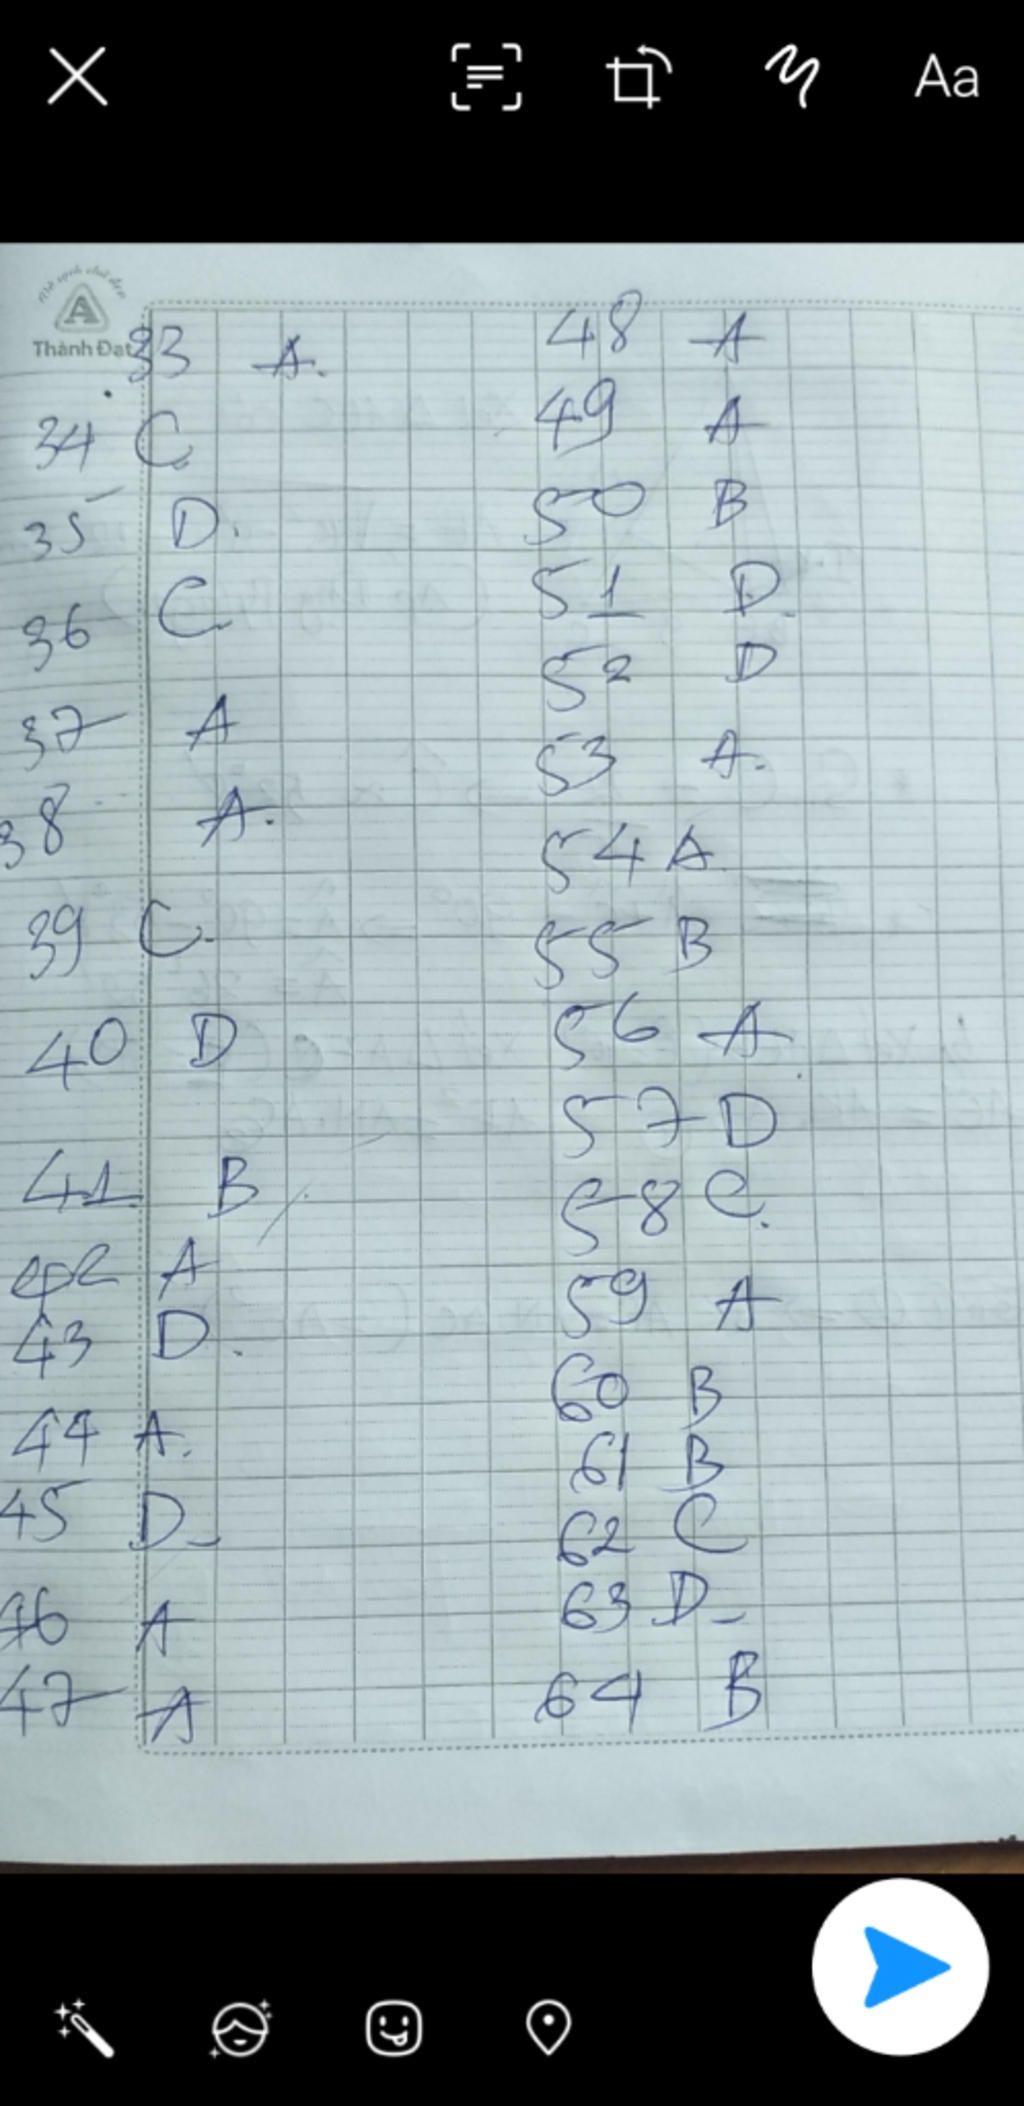 Aa
Vở sạch chữ đẹp
A
Thành Đạt
33 A.
34 C
35 D.
36 C
37 A
38 A.
39 C.
40 D
41 B
42 A
43 D.
44 A.
45 D
46 A
47 A
48 A
49 A
50 B
51 D
52 D
53 A.
54 A
55 B
56 A
57 D
58 C.
59 A
60 B
61 B
62 C
63 D
64 B